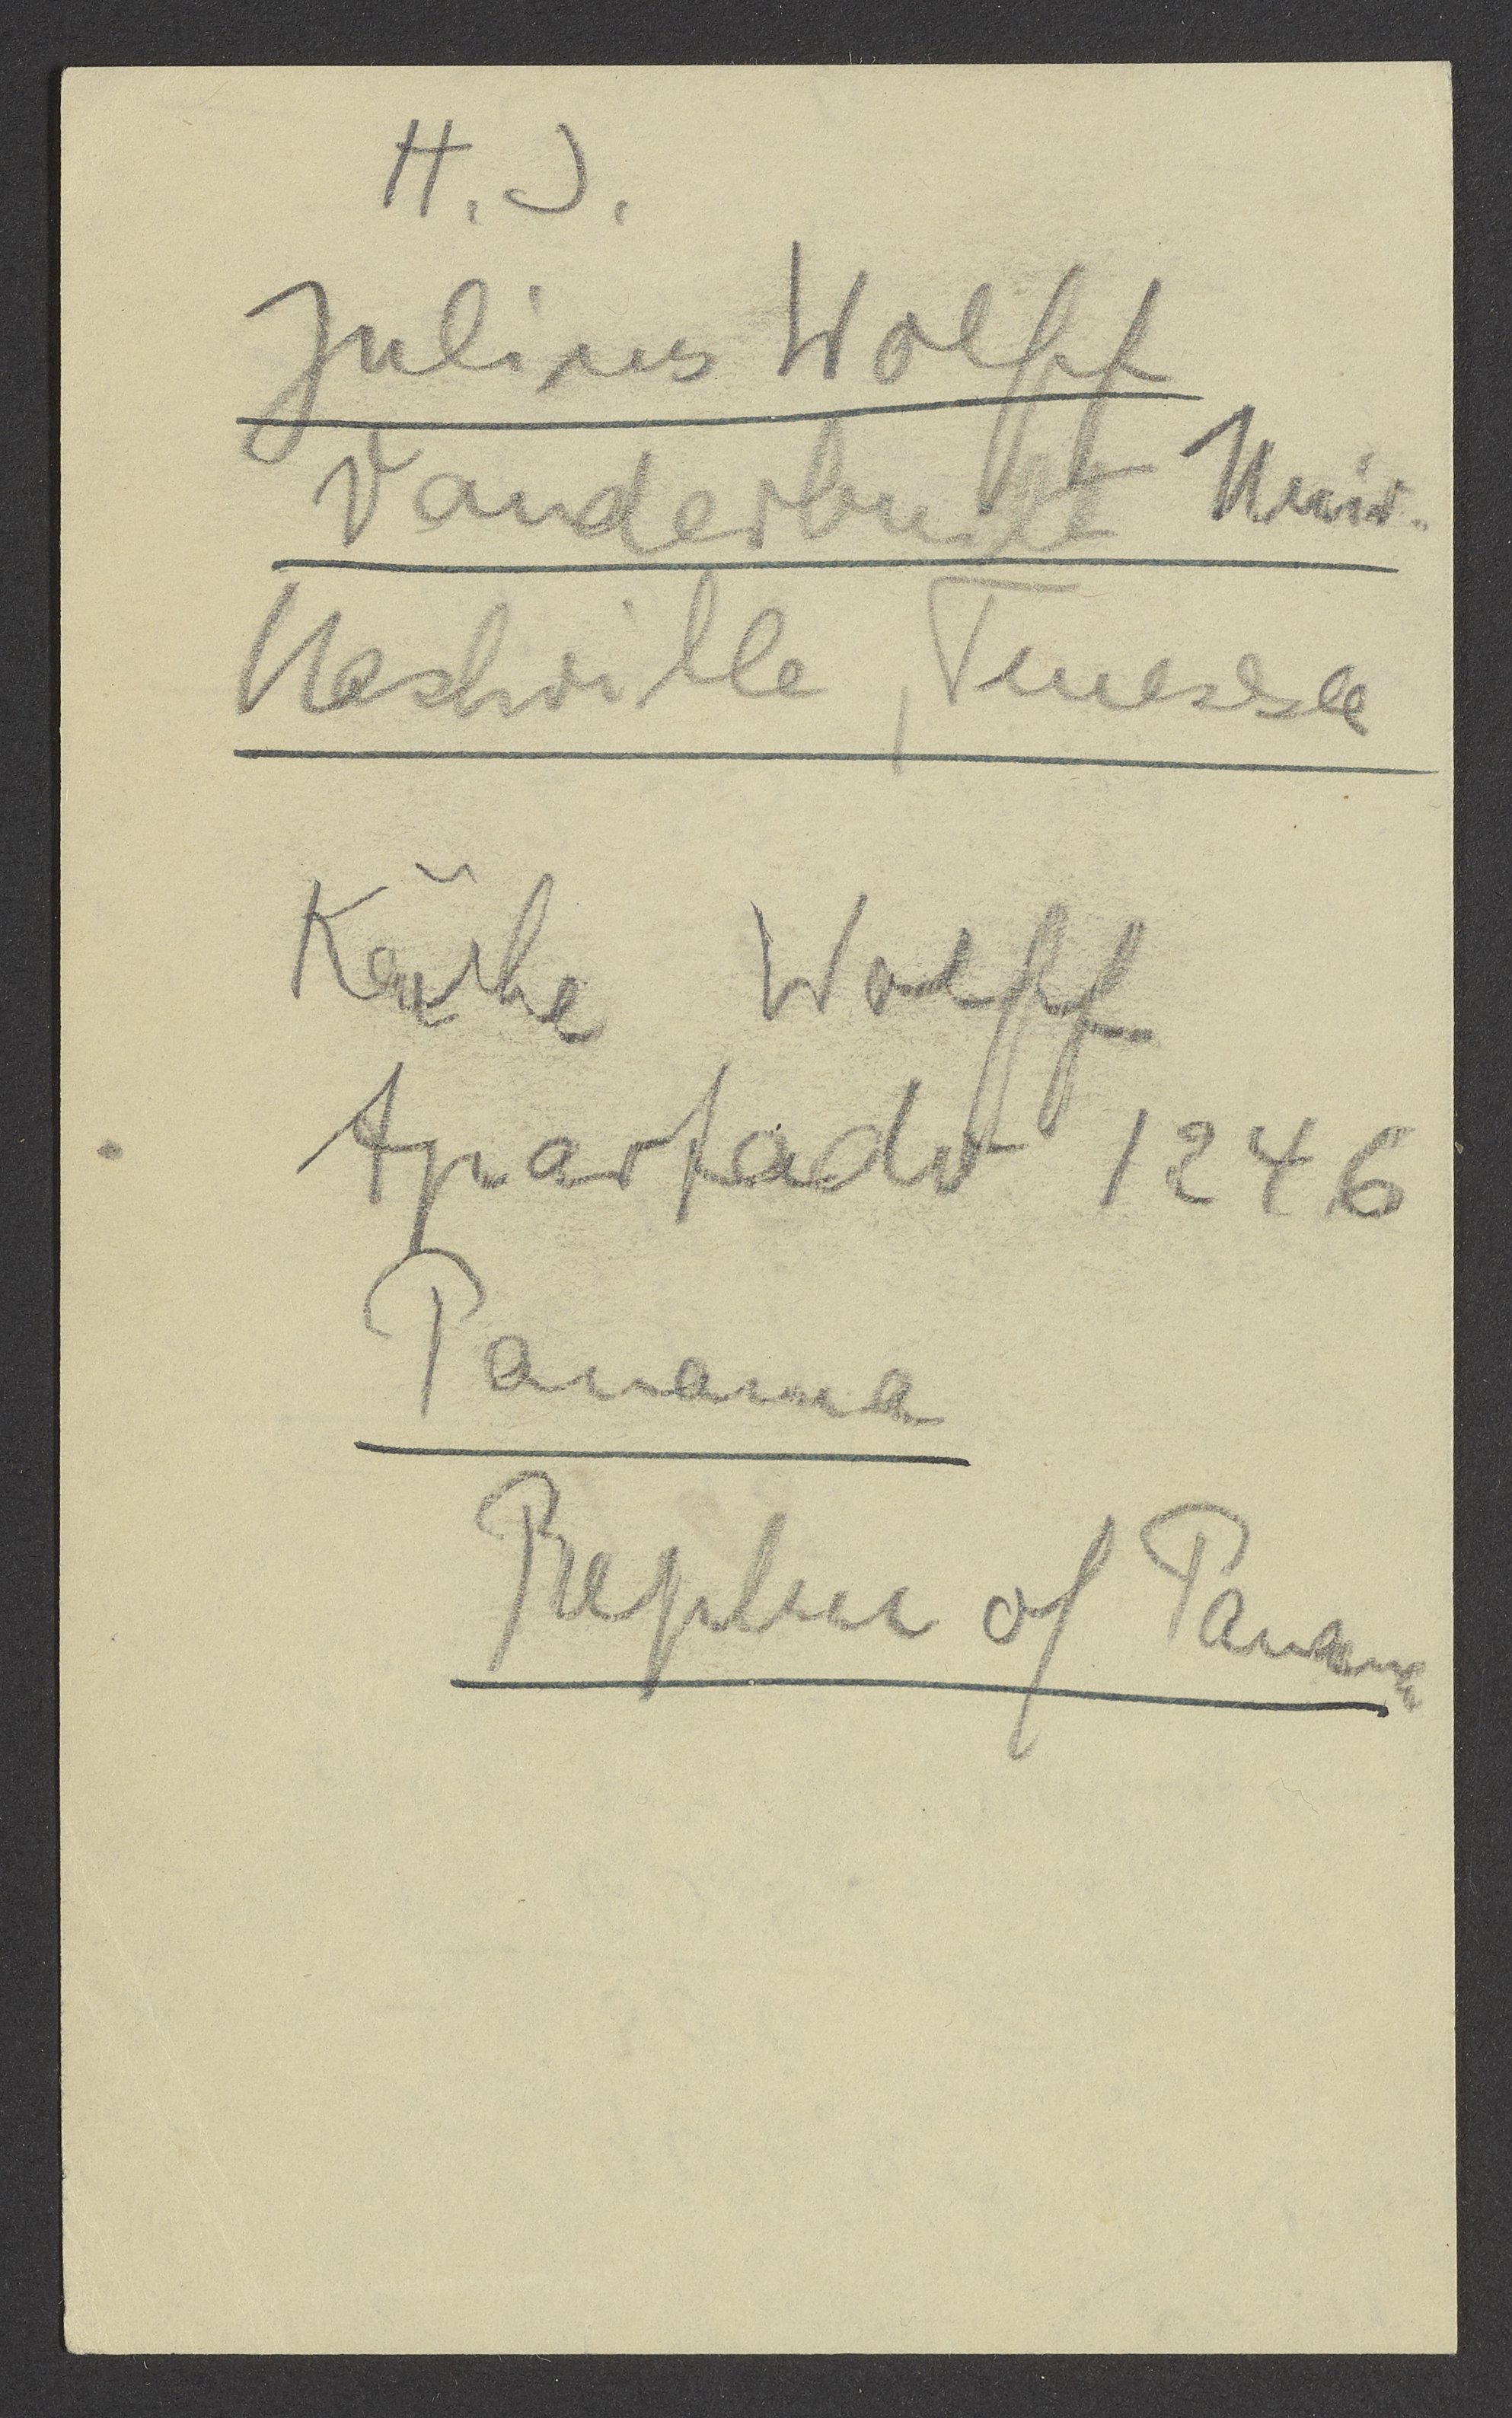 H. J.
Julius Wolff
Vanderbult Univ.
Nashville, Tenessee
Käthe Wolff
Apartado 1246
Panama
of Panama